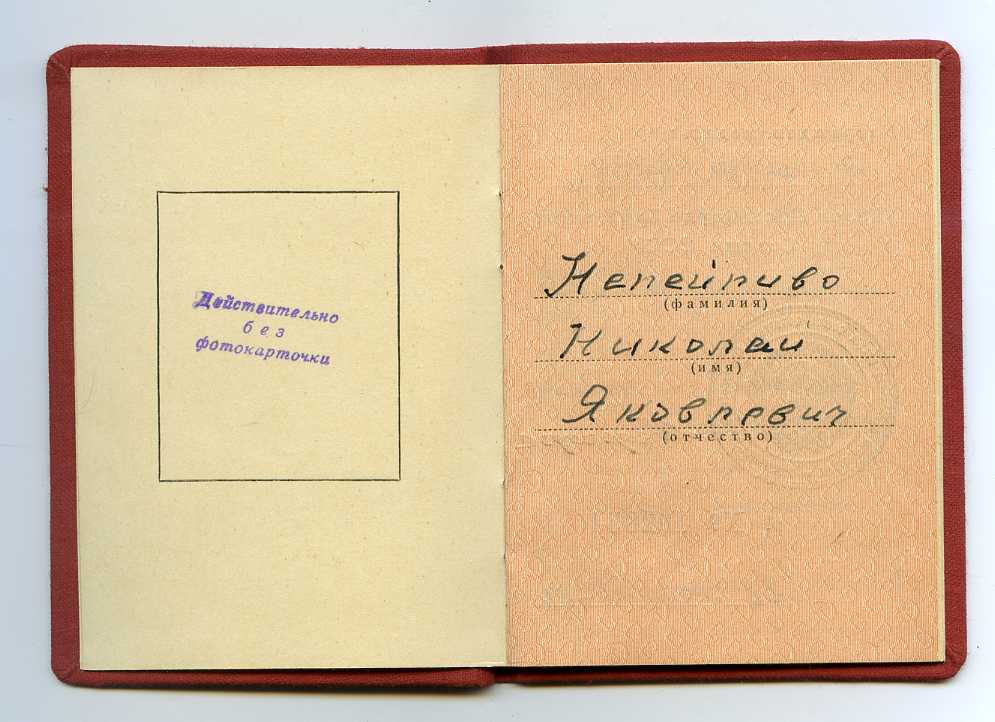 Действительно
без
фотокарточки
Непейпиво
(фамилия)
Николай
(имя)
Яковлевич
(отчество)